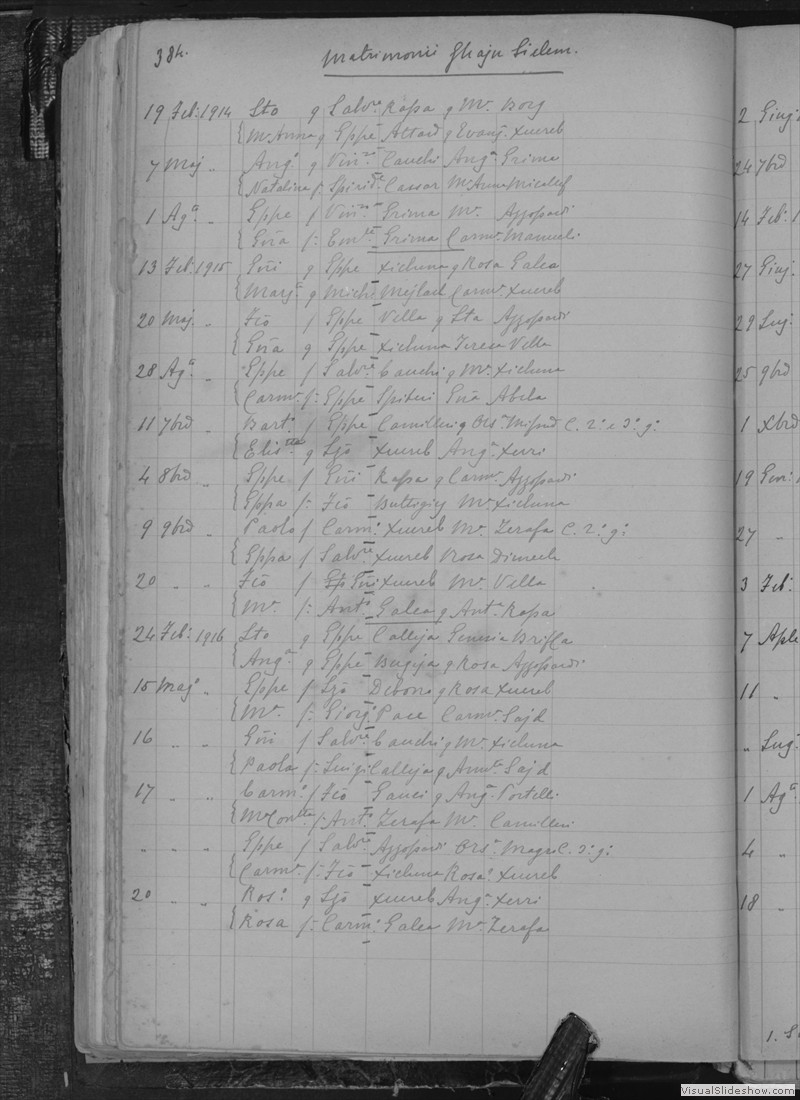 384.
Matrimonii Ghajn Sielem.
19 Feb: 1914 Sto q Salv.re Rapa q M.a Borg
{M.a Anna q Eppe Attard q Evang.a Xuereb
7 Maj „ Ang.o q Vin.zo Cauchi Ang.a Grima
{Natalina f: Spirid.ne Cassar M.a Anna Micallef
1 Ag.o „ Eppe f Vin.zo Grima M.a Azzopardi
{Gña f: Em.le Grima Carm.a Manueli
13 Feb: 1915 Gñi q Eppe Xicluna q Rosa Galea
{Marj.a q Mich.e Mejlach Carm.a Xuereb
20 Maj „ Fco f Eppe Vella q Sta Azzopardi
{Gña q Eppe Xicluna Teresa Vella
28 Ag.o „ Eppe f Salv.re Cauchi q M.a Xicluna
{Carm.a f: Eppe Spiteri Gña Abela
11 7bre „ Bart.o f Eppe Camilleri q Ors.a Mifsud C. 2.o e 3.o g:
{Elis.tta q Sjo Xuereb Ang.a Xerri
4 8bre „ Eppe f Gñi Rapa q Carm.a Azzopardi
{Eppa f: Fco Buttigieg M.a Xicluna
9 9bre „ Paolo f Carm.o Xuereb M.a Zerafa C. 2.o g:
{Eppa f Salv.re Xuereb Rosa Dimech
20 „ „ Fco f Gñi Xuereb M.a Vella
{M.a f: Ant.o Galea q Ant.a Rapa
24 Feb: 1916 Sto q Eppe Calleja Genesia Briffa
{Ang.a q Eppe Bugeja q Rosa Azzopardi
15 Maj.o „ Eppe f Sjo Debono q Rosa Xuereb
{M.a f: Giorg.o Pace Carm.a Sajd
16 „ „ Gñi f Salv.re Cauchi q M.a Xicluna
{Paola f: Luigi Calleja q Ann.ta Sajd
17 „ „ Carm.o f Fco Gauci q Ang.a Portelli
{M.a Con.tta f: Ant.o Zerafa M.a Camilleri
„ „ „ Eppe f Salv.re Azzopardi Ors.a Magro C. 3.o g:
{Carm.a f: Fco Xicluna Rosa Xuereb
20 „ „ Ros.o q Sjo Xuereb Ang.a Xerri
{Rosa f: Carm.o Galea M.a Zerafa
2 Giug:
24 7bre
14 Feb:
27 Giug:
29 Lug:
25 9bre
1 Xbre
19 Gen:
27 „
3 Feb:
7 Aple
11 „
„ Lug:
1 Ag.o
4 „
18 „
VisualSlideshow.com